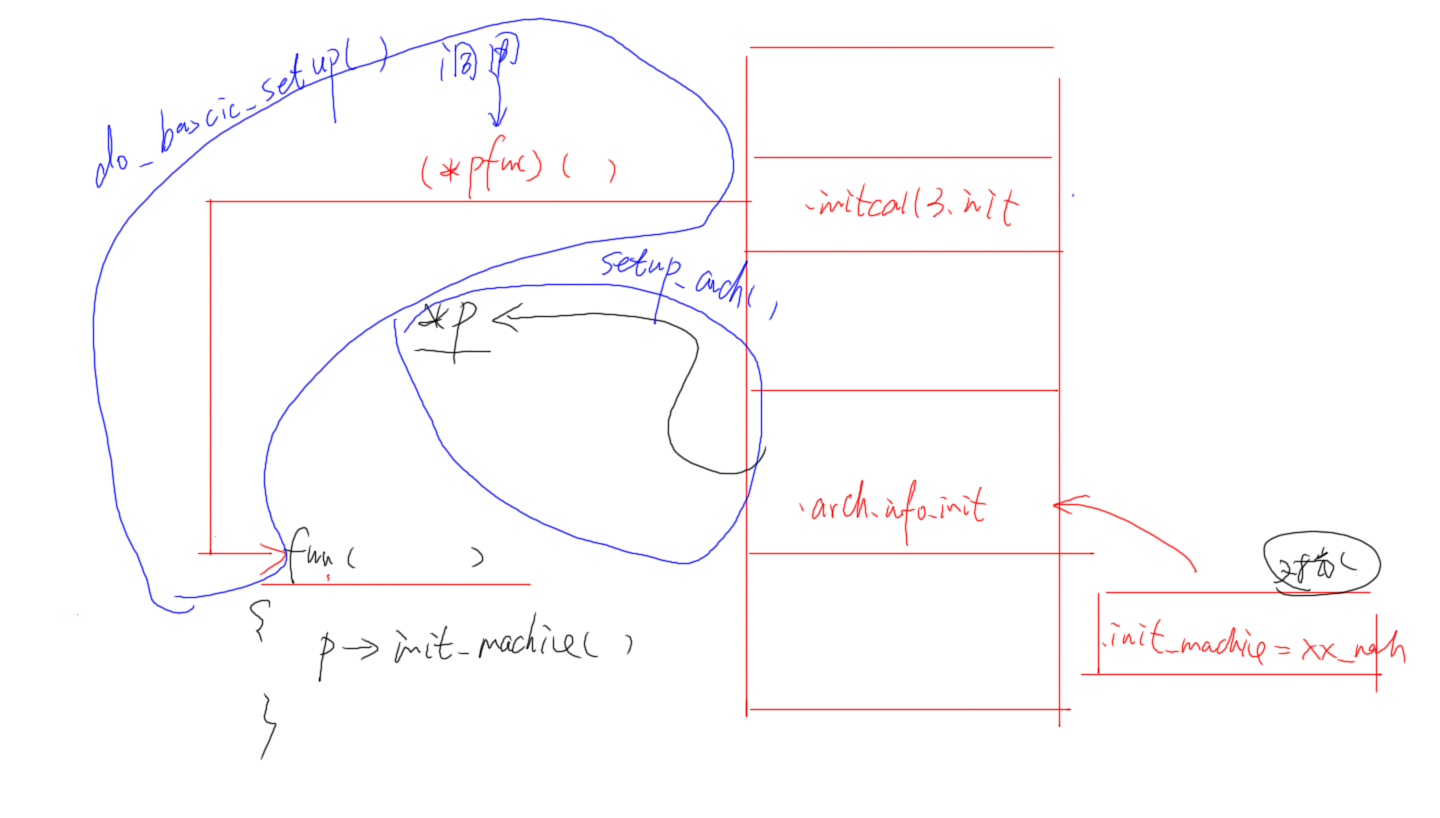 do_bascic_setup()
调用
(*pfunc) ( )
.initcall3.init
setup_arch()
*p
.arch.info.init
func( )
{
p→init_machice()
}
.init_machice = xx_mach